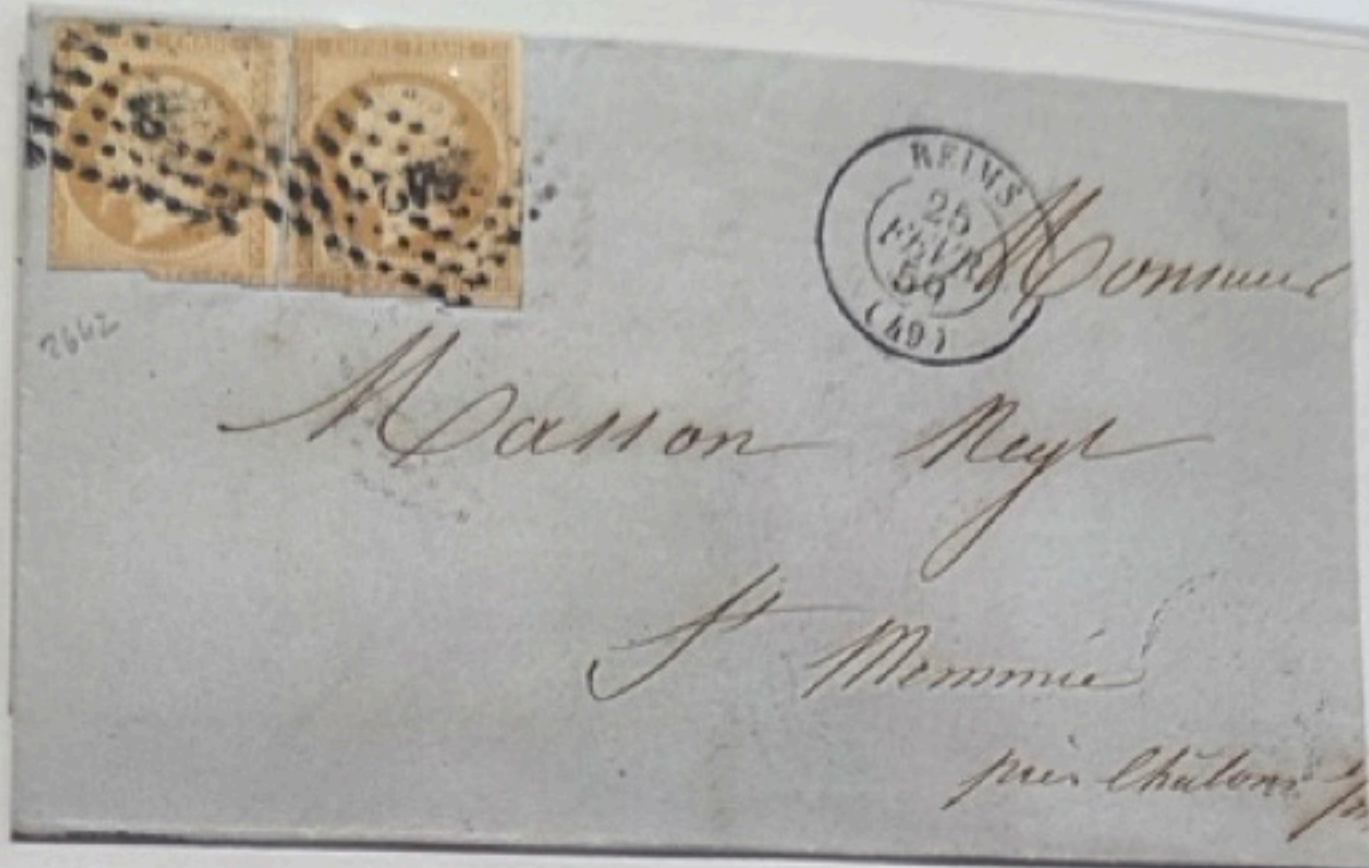 REIMS
25
FEVR.
56
(49)
2642
Monsieur
Masson Neyt
St Memmie
près Châlons s/m